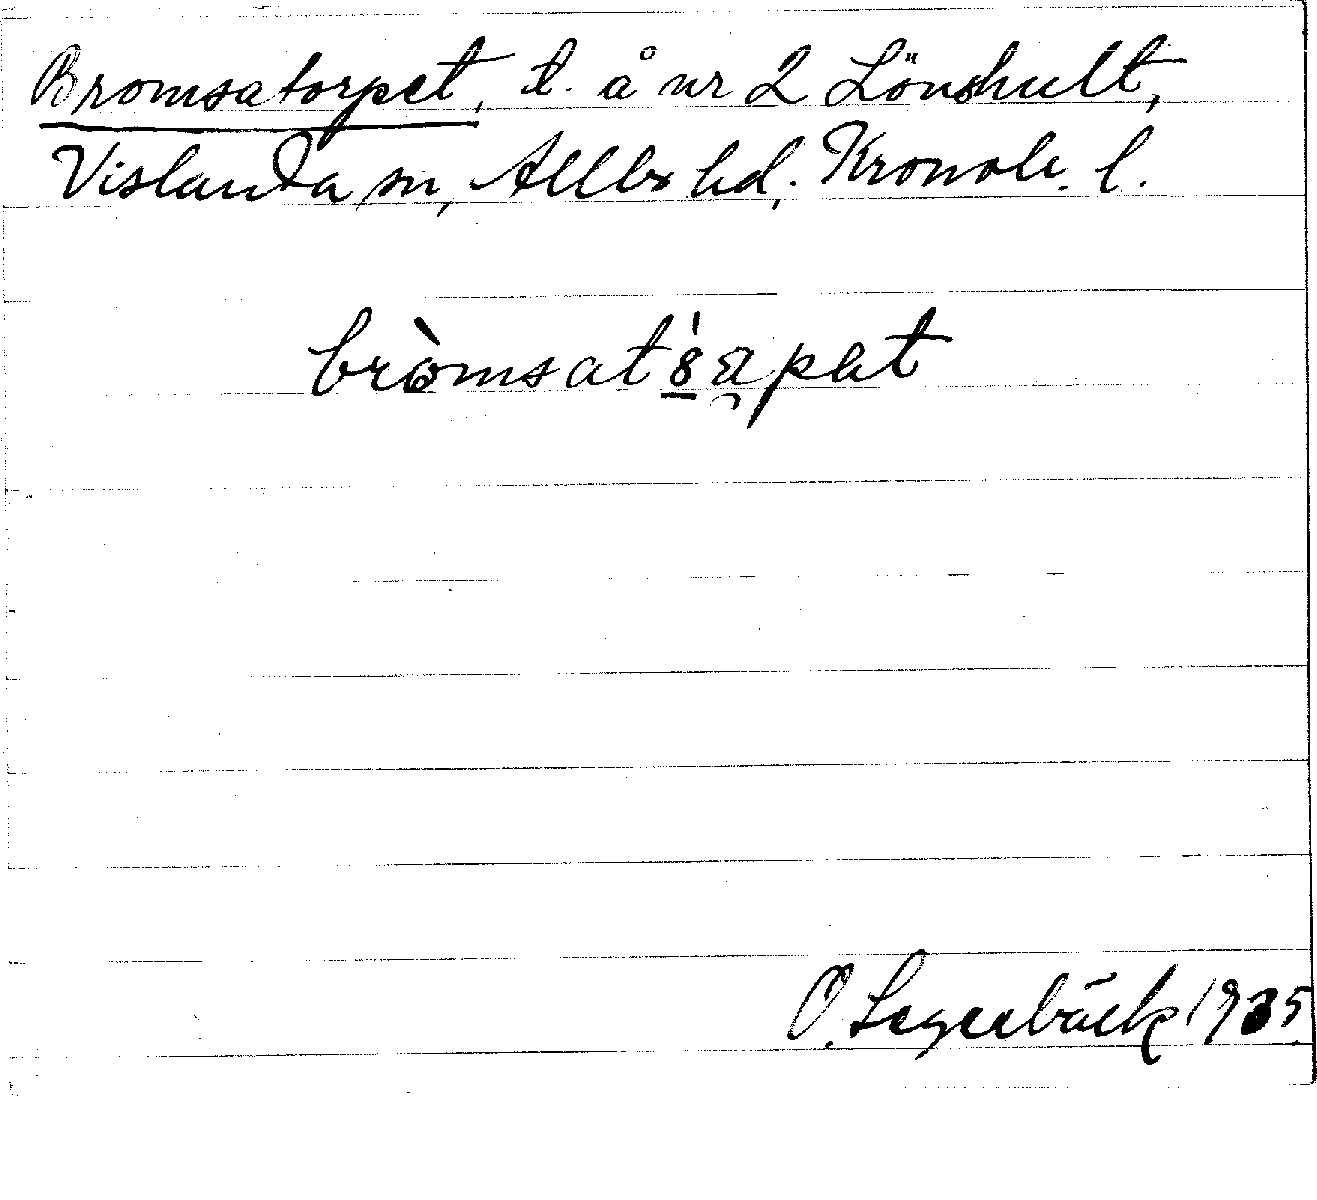 Bromsatorpet, t. å nr 2 Lönshult,
Vislanda sn, Allbo hd, Kronob. l.
bròmsat
O. 1935